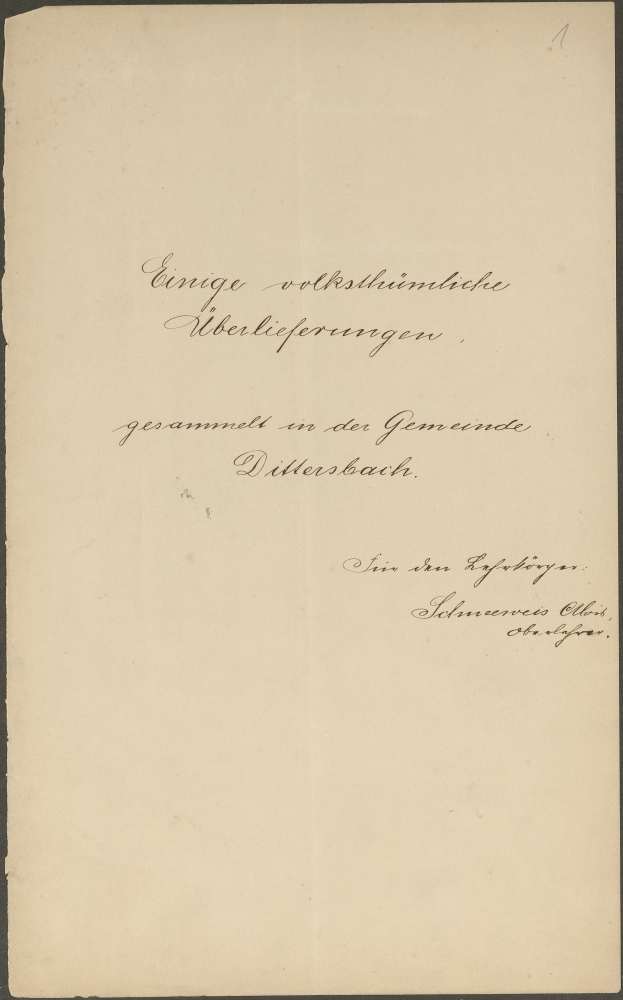 1
Einige volksthümliche
Überlieferungen,
gesammelt in der Gemeinde
Dittersbach.
Für den Lehrkörper:
Schneeweis Alois,
Oberlehrer.